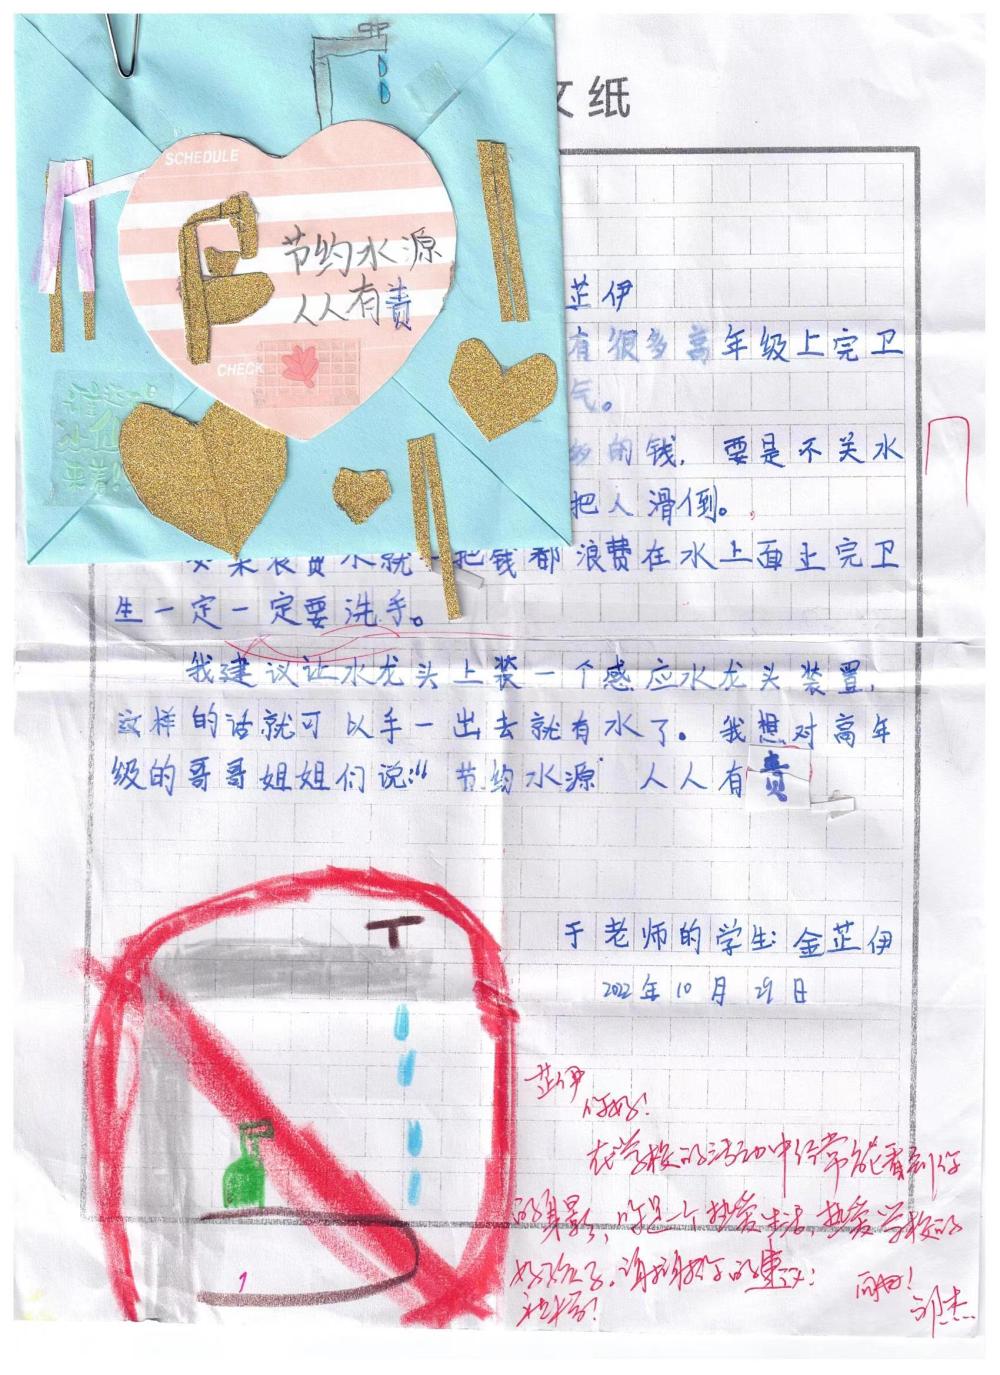 文纸
SCHEDULE
节约水源
人人有责
CHECK
芷伊
有很多高年级上完卫
气。
的钱，要是不关水
把人滑倒。
如果浪费水就 把钱都浪费在水上面上完卫
生一定一定要洗手。
我建议让水龙头上装一个感应水龙头装置，
这样的话就可以手一出去就有水了。我想对高年
级的哥哥姐姐们说：“节约水源 人人有责
于老师的学生：金芷伊
2022年10月29日
芷伊
你好！
在学校的活动中经常能看到你
的身影，你是一个热爱生活，热爱学校的
好孩子。谢谢你的建议！